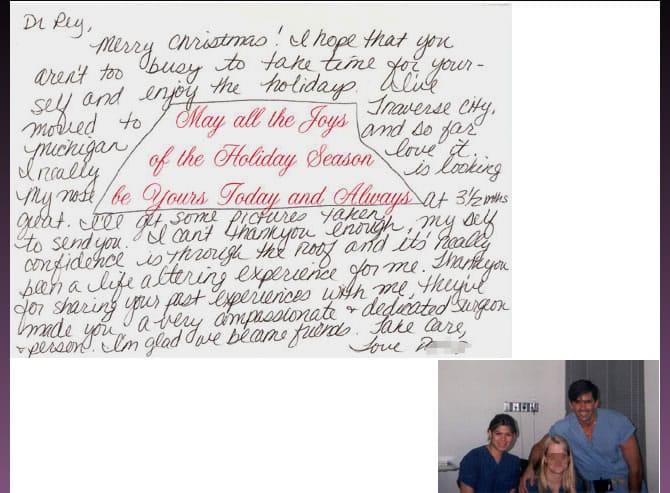 Dr Rey,
Merry Christmas! I hope that you
aren't too busy to take time for your-
self and enjoy the holidays. I've
moved to Traverse City,
Michigan and so far
I really love it.
My nose is looking
great. At 3 1/2 mths
I'll get some pictures taken
to send you. I can't thankyou enough, my self
confidence is through the roof and its really
been a life altering experience for me. Thankyou
for sharing your past experiences with me, they've
made you a very compassionate & dedicated surgeon
& person. I'm glad we became friends. Take care,
Love D
May all the Joys
of the Holiday Season
be Yours Today and Always